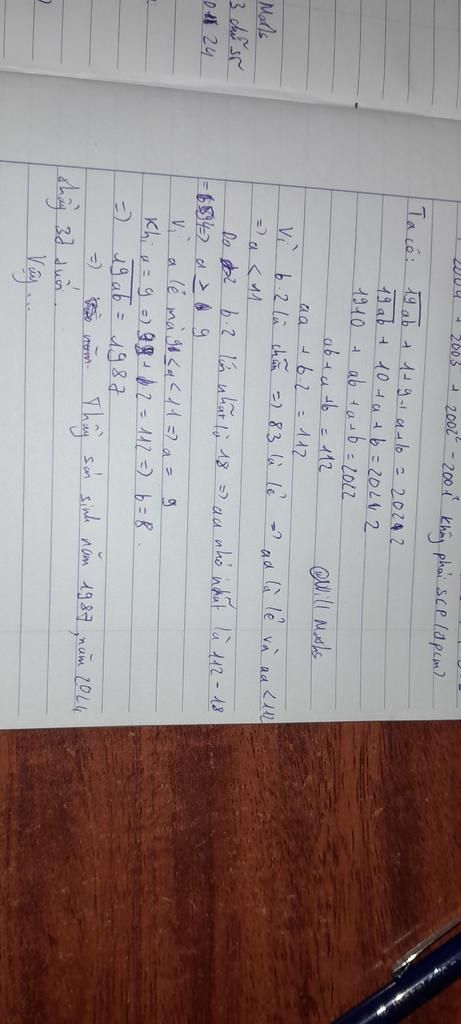 Maths
3 chữ số
24
2004 + 2003 + 2002² - 2001² không phải SCP (đpcm)
Ta có: 19ab + 1+9+a+b = 2022
19ab + 10 + a + b = 2022
1910 + ab + a+b = 2022
ab + a + b = 112
aa + b.2 = 112 @Will Maths
Vì b.2 là chẵn => 83 là lẻ => aa là lẻ và aa < 112
=> a < 11
Do b.2 lớn nhất là 18 => aa nhỏ nhất là 112 - 18
= 94 => a ≥ 9
Vì a lẻ mà 9 ≤ a < 11 => a = 9
Khi a = 9 => 99 + b.2 = 112 => b = 8.
=> 19ab = 1987
=> Thầy sơn sinh năm 1987, năm 2024
thầy 38 tuổi.
Vậy...